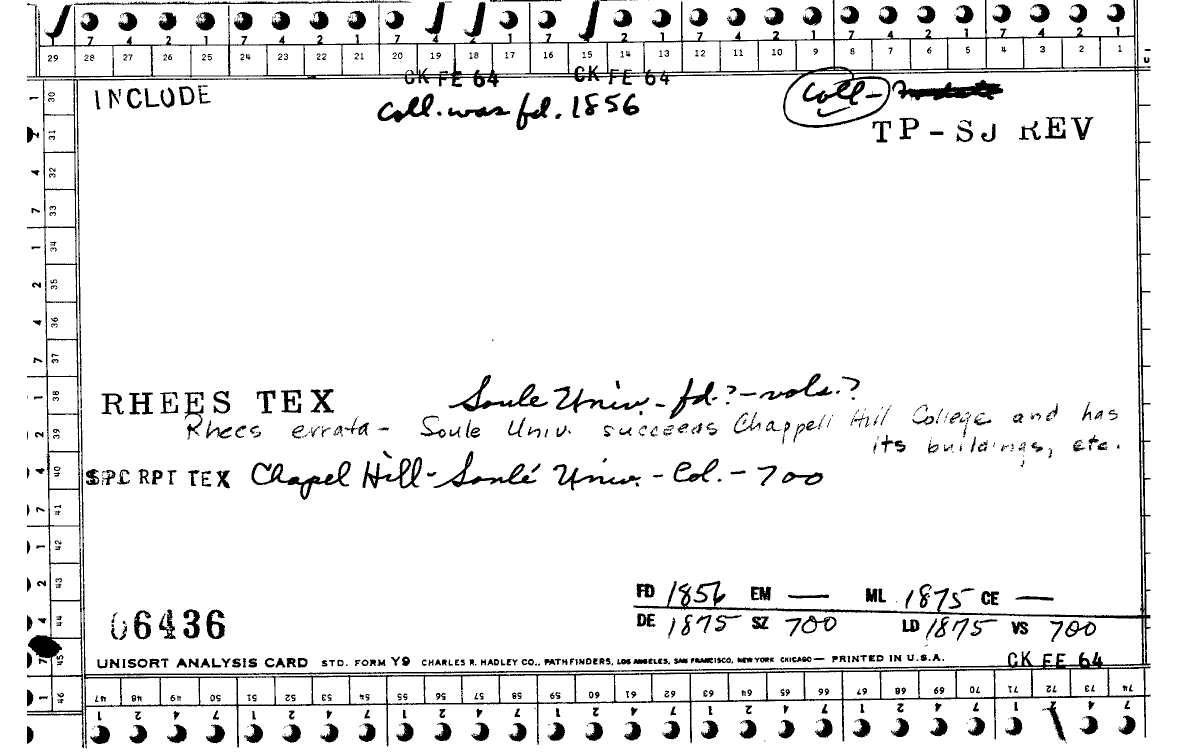 7 4 2 1 7 4 2 1 7 2 1 7 2 1 7 4 2 1 7 4 2 1 7 4 2 1
29 28 27 26 25 24 23 22 21 20 19 18 17 16 15 14 13 12 11 10 9 8 7 6 5 4 3 2 1
CK FE 64 CK FE 64
INCLUDE
Coll. was fd. 1856
Coll-
TP-SJ REV
1 30
2 31
4 32
7 33
1 34
2 35
4 36
7 37
1 38
2 39
4 40
7 41
1 42
2 43
4 44
7 45
1 46
RHEES TEX Soule Univ. - fd? - vols.?
Rhees errata - Soule Univ. succeeds Chappell Hill College and has
its buildings, etc.
SPC RPT TEX Chapel Hill - Soulé Univ. - Col. - 700
FD 1856 EM — ML 1875 CE —
DE 1875 SZ 700 LD 1875 VS 700
06436
CK FE 64
UNISORT ANALYSIS CARD STD. FORM Y9 CHARLES R. HADLEY CO., PATHFINDERS, LOS ANGELES, SAN FRANCISCO, NEW YORK CHICAGO — PRINTED IN U.S.A.
47 48 49 50 51 52 53 54 55 56 57 58 59 60 61 62 63 64 65 66 67 68 69 70 71 72 73 74
1 2 4 7 1 2 4 7 1 2 4 7 1 2 4 7 1 2 4 7 1 2 4 7 1 2 4 7